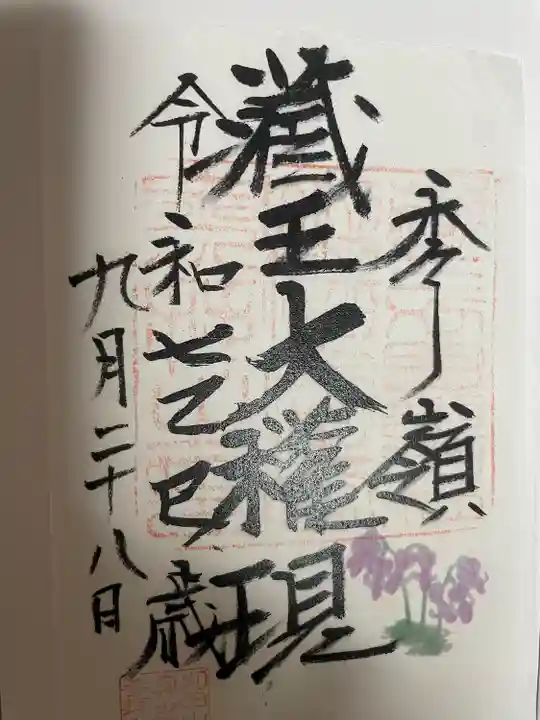 秀嶺
蔵王大権現
令和七乙巳歳
九月二十八日